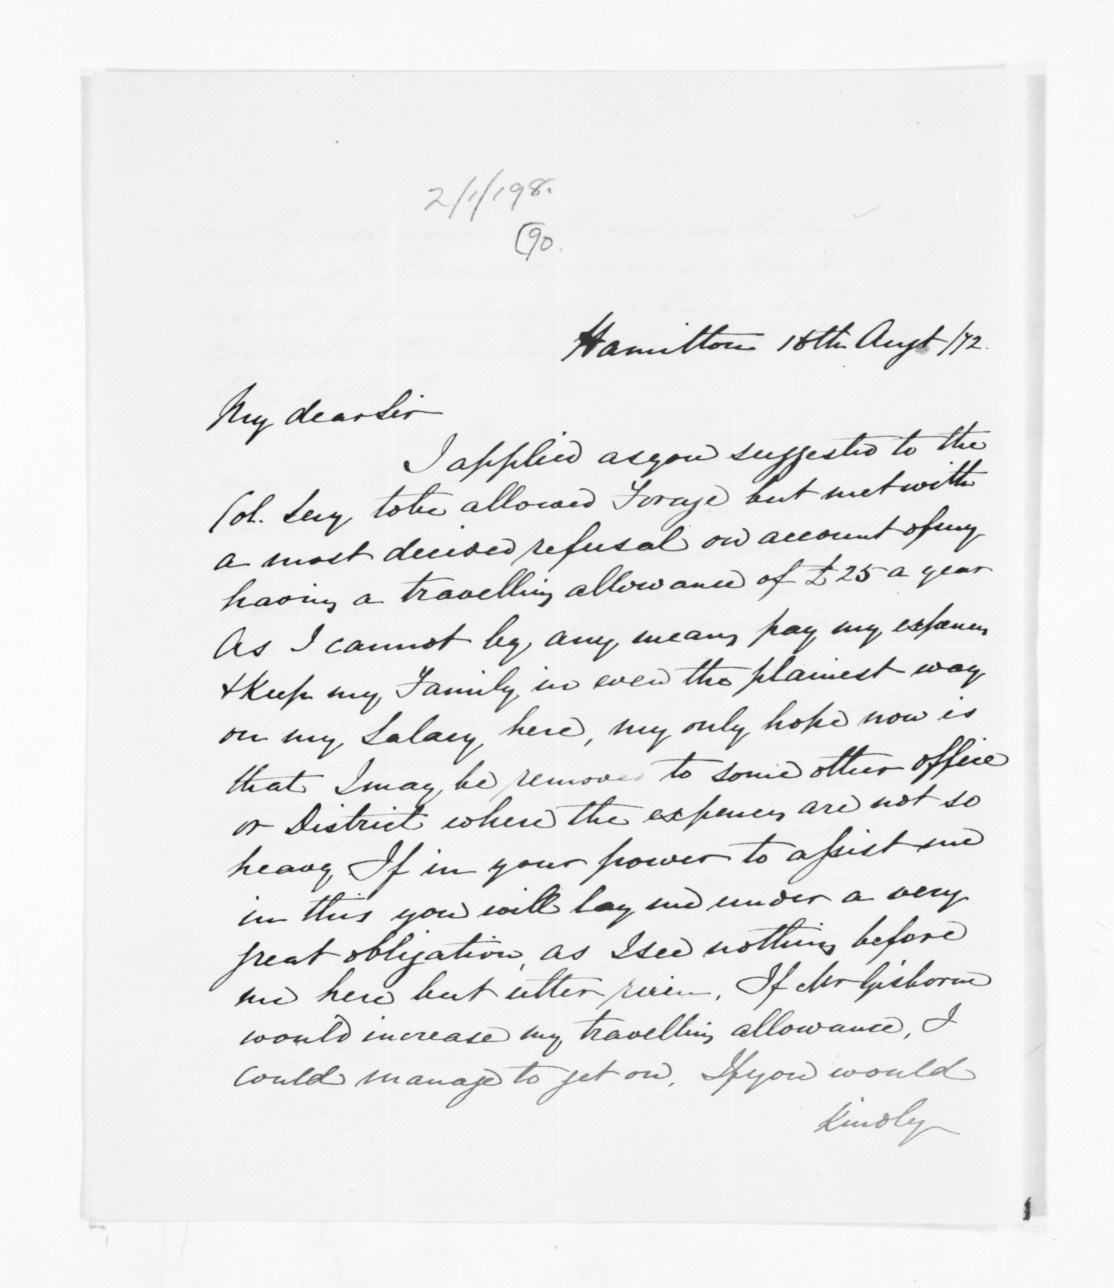 2/1/198.
(90.
Hamilton 18th Augt /72.
My dear Sir
I applied as you suggested to the
Col. Secy to be allowed Forage but met with
a most decided refusal on account of my
having a travelling allowance of £25 a year
As I cannot by any means pay my expences
& keep my Family in even the plainest way
on my Salary here, my only hope now is
that I may be removed to some other office
or District where the expences are not so
heavy If in your power to assist me
in this you will lay me under a very
great obligation, as I see nothing before
me here but utter ruin. If Mr Gisborne
would increase my travelling allowance, I
could manage to get on. If you would
kindly